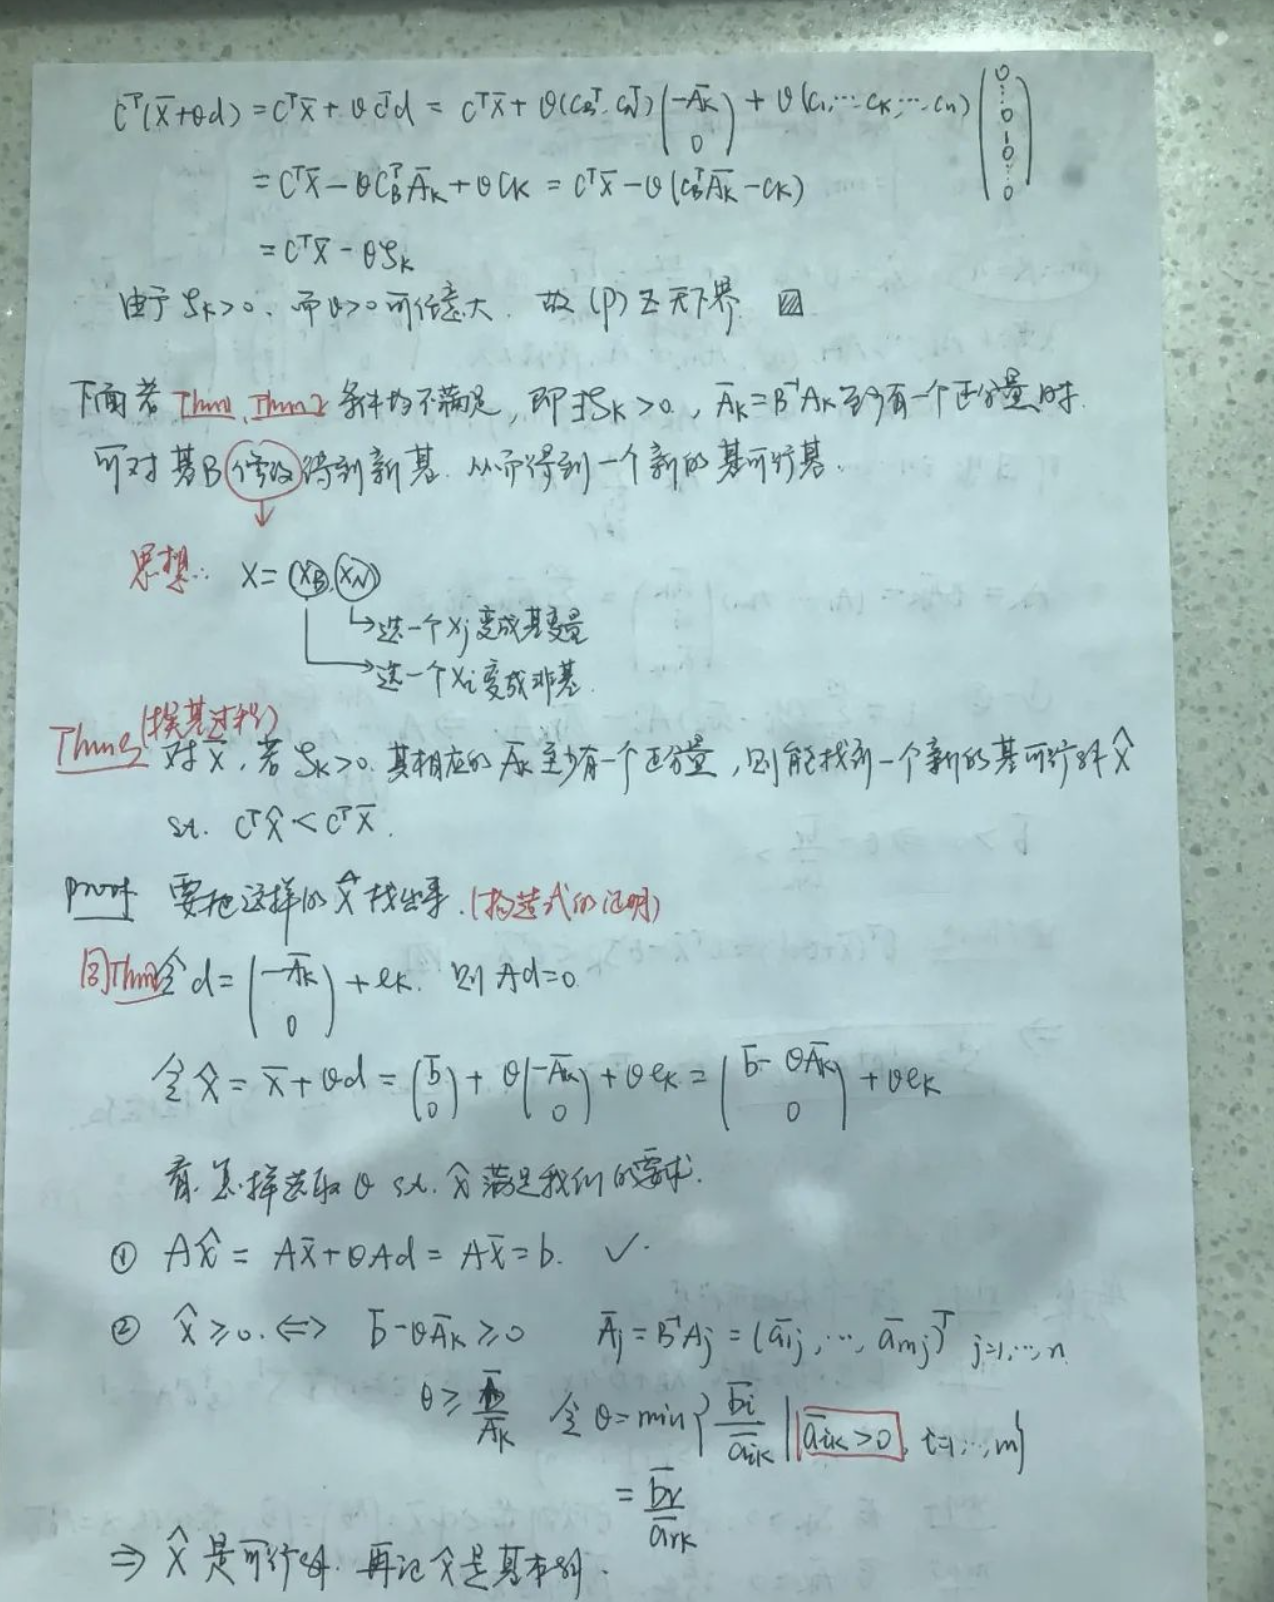 C^T(x̄+θd) = C^Tx̄ + θC^Td = C^Tx̄ + θ(C_B^T, C_N^T)(-Ā_k 0) + θ(c_1, ⋯ c_k, ⋯ c_n)(0 ⋮ 0 1 0 ⋮ 0)
= C^Tx̄ - θC_B^TĀ_k + θC_k = C^Tx̄ - θ(C_B^TĀ_k - C_k)
= C^Tx̄ - θζ_k
由于 ζ_k>0, 而θ>0可任意大. 故 (P) 无下界
下面若 Thm1, Thm2 条件均不满足, 即∃ζ_k>0, Ā_k=B^{-1}A_k至少有一个正分量时.
可对基B修改得到新基. 从而得到一个新的基可行基.
思想: X=(X_B, X_N)
选一个x_j变成基变量
选一个x_i变成非基.
Thm3 (换基过程)
对x̄, 若ζ_k>0. 其相应的Ā_k至少有一个正分量, 则能找到一个新的基可行解x̂
s.t. C^Tx̂ < C^Tx̄.
proof 要把这样的x̂找出来. (构造式的证明)
同Thm2 令d=(-Ā_k 0)+e_k. 则Ad=0.
令x̂=x̄+θd=(b̄ 0)+θ(-Ā_k 0)+θe_k=(b̄-θĀ_k 0)+θe_k
看怎样选取θ s.t. x̂满足我们的要求.
① Ax̂ = Ax̄+θAd = Ax̄ = b. ✓.
② x̂≥0. ⟺ b̄-θĀ_k≥0 Ā_j=B^{-1}A_j=(ā_{1j}, ⋯, ā_{mj})^T j=1,⋯,n
θ≥b̄/Ā_k 令θ=min{b̄_i/ā_{ik} | ā_{ik}>0, i=1,⋯,m}
= b̄_r/ā_{rk}
⇒ x̂是可行解. 再证x̂是基本解.